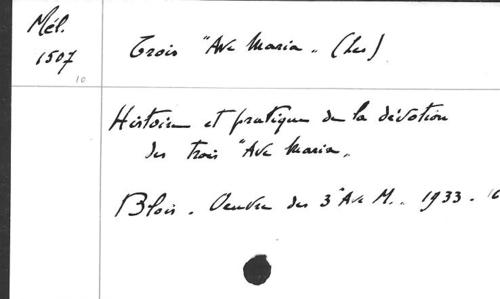 Mél.
1507
10
Trois "Ave Maria". (Les)
Histoire et pratique de la dévotion
des trois "Ave Maria".
Blois. Oeuvre des 3 "Ave M.". 1933. 16